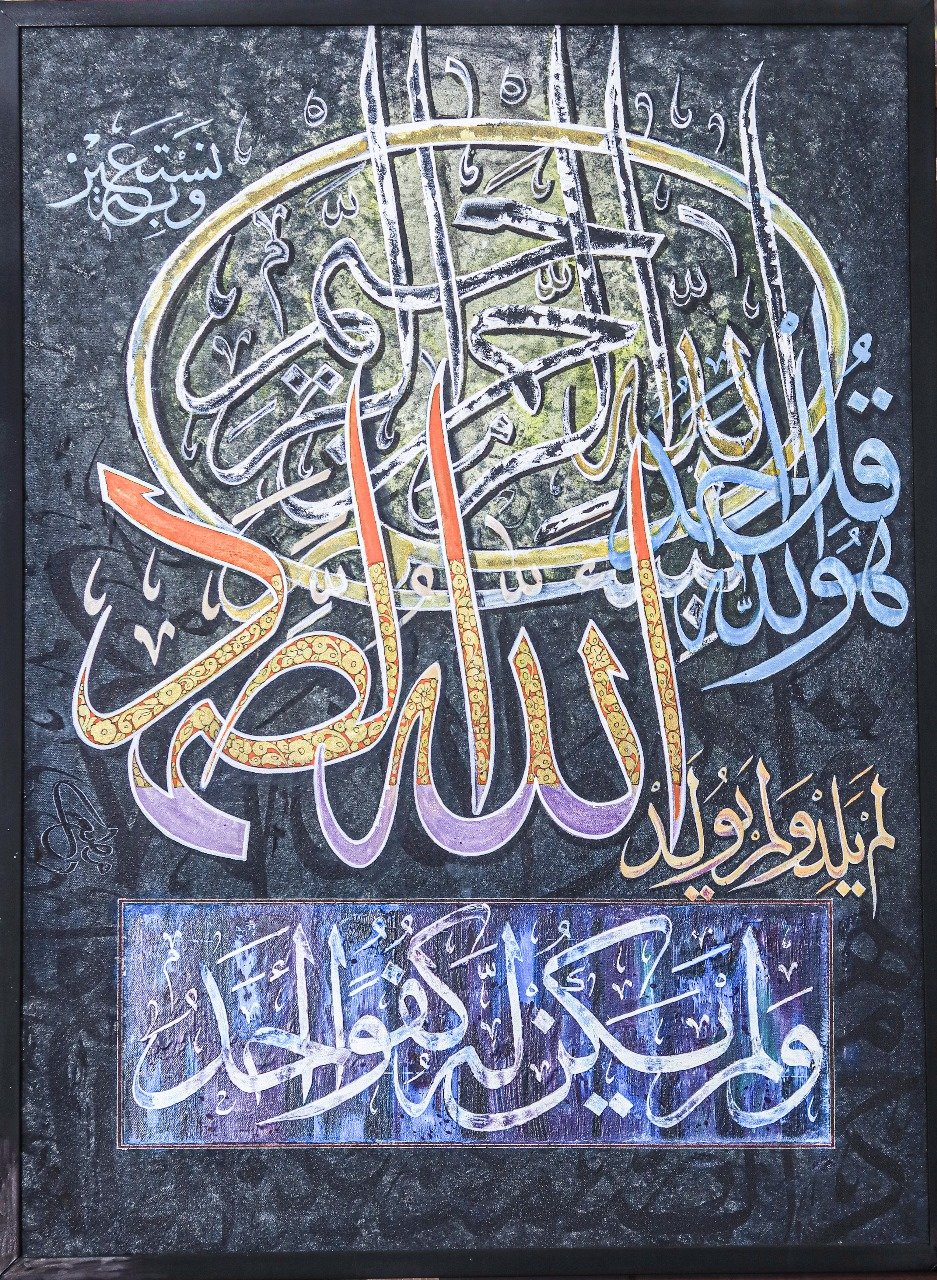 وبه نستعين
بسم الله الرحمن الرحيم
قل هو الله احد
الله الصمد
لَمْ يَلِدْ وَلَمْ يُولَدْ
وَلَمْ يَكُنْ لَهُ كُفُوًا أَحَدٌ